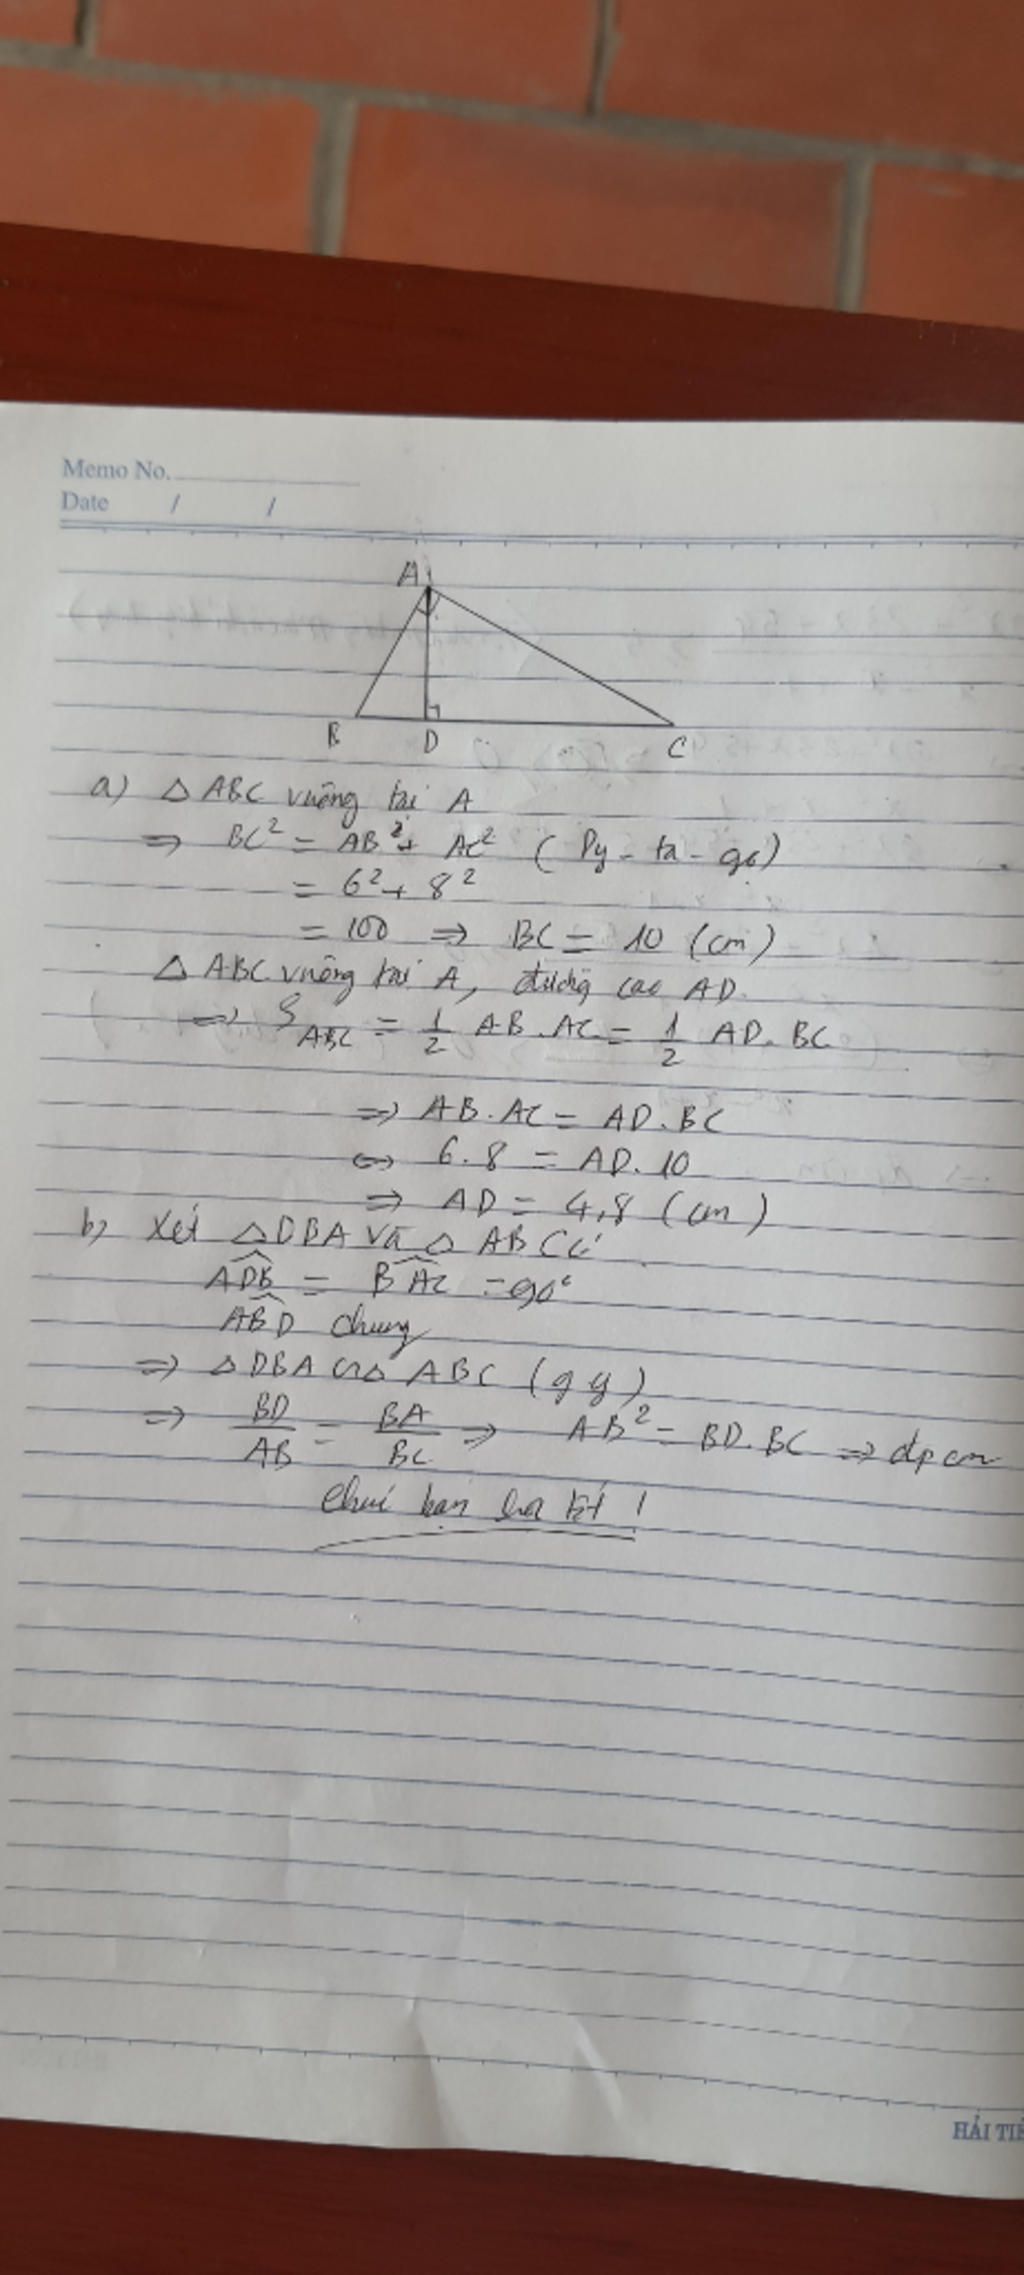 Memo No.
Date / /
A
B D C
a) △ ABC vuông tại A
=> BC² = AB² + AC² ( Py - ta - go)
= 6² + 8²
= 100 => BC = 10 (cm)
△ ABC vuông tại A, đường cao AD.
=> S ABC = 1/2 AB . AC = 1/2 AD . BC
=> AB . AC = AD . BC
<=> 6 . 8 = AD . 10
=> AD = 4,8 (cm)
b) Xét △DBA và △ ABC có
ADB̂ = BAĈ = 90°
ABD̂ chung
=> △ DBA ∽ △ ABC (g g)
=> BD/AB = BA/BC => AB² = BD . BC => đpcm
Chúc bạn học tốt !
HẢI TIẾ